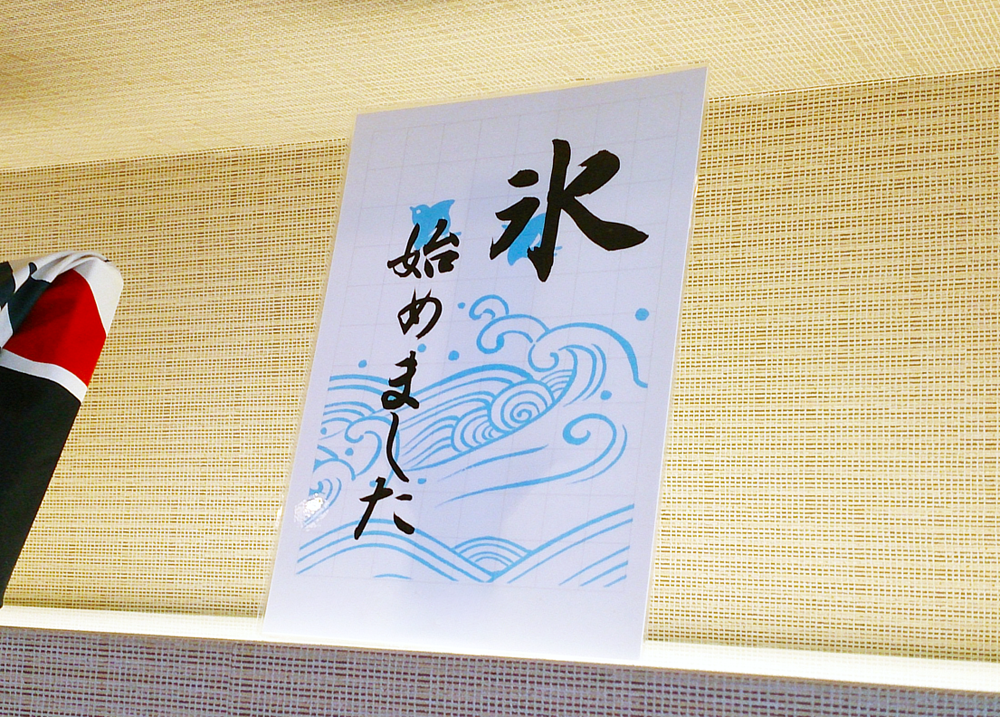 氷
始めました